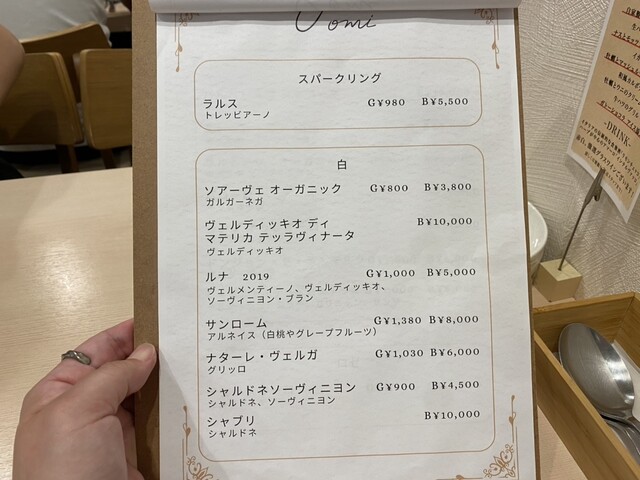 Uomi
スパークリング
ラルス G¥980 B¥5,500
トレッビアーノ
白
ソアーヴェ オーガニック G¥800 B¥3,800
ガルガーネガ
ヴェルディッキオ ディ B¥10,000
マテリカ テッラヴィナータ
ヴェルディッキオ
ルナ 2019 G¥1,000 B¥5,000
ヴェルメンティーノ、ヴェルディッキオ、
ソーヴィニヨン・ブラン
サンローム G¥1,380 B¥8,000
アルネイス（白桃やグレープフルーツ）
ナターレ・ヴェルガ G¥1,030 B¥6,000
グリッロ
シャルドネソーヴィニヨン G¥900 B¥4,500
シャルドネ、ソーヴィニヨン
シャブリ B¥10,000
シャルドネ
-DRINK-